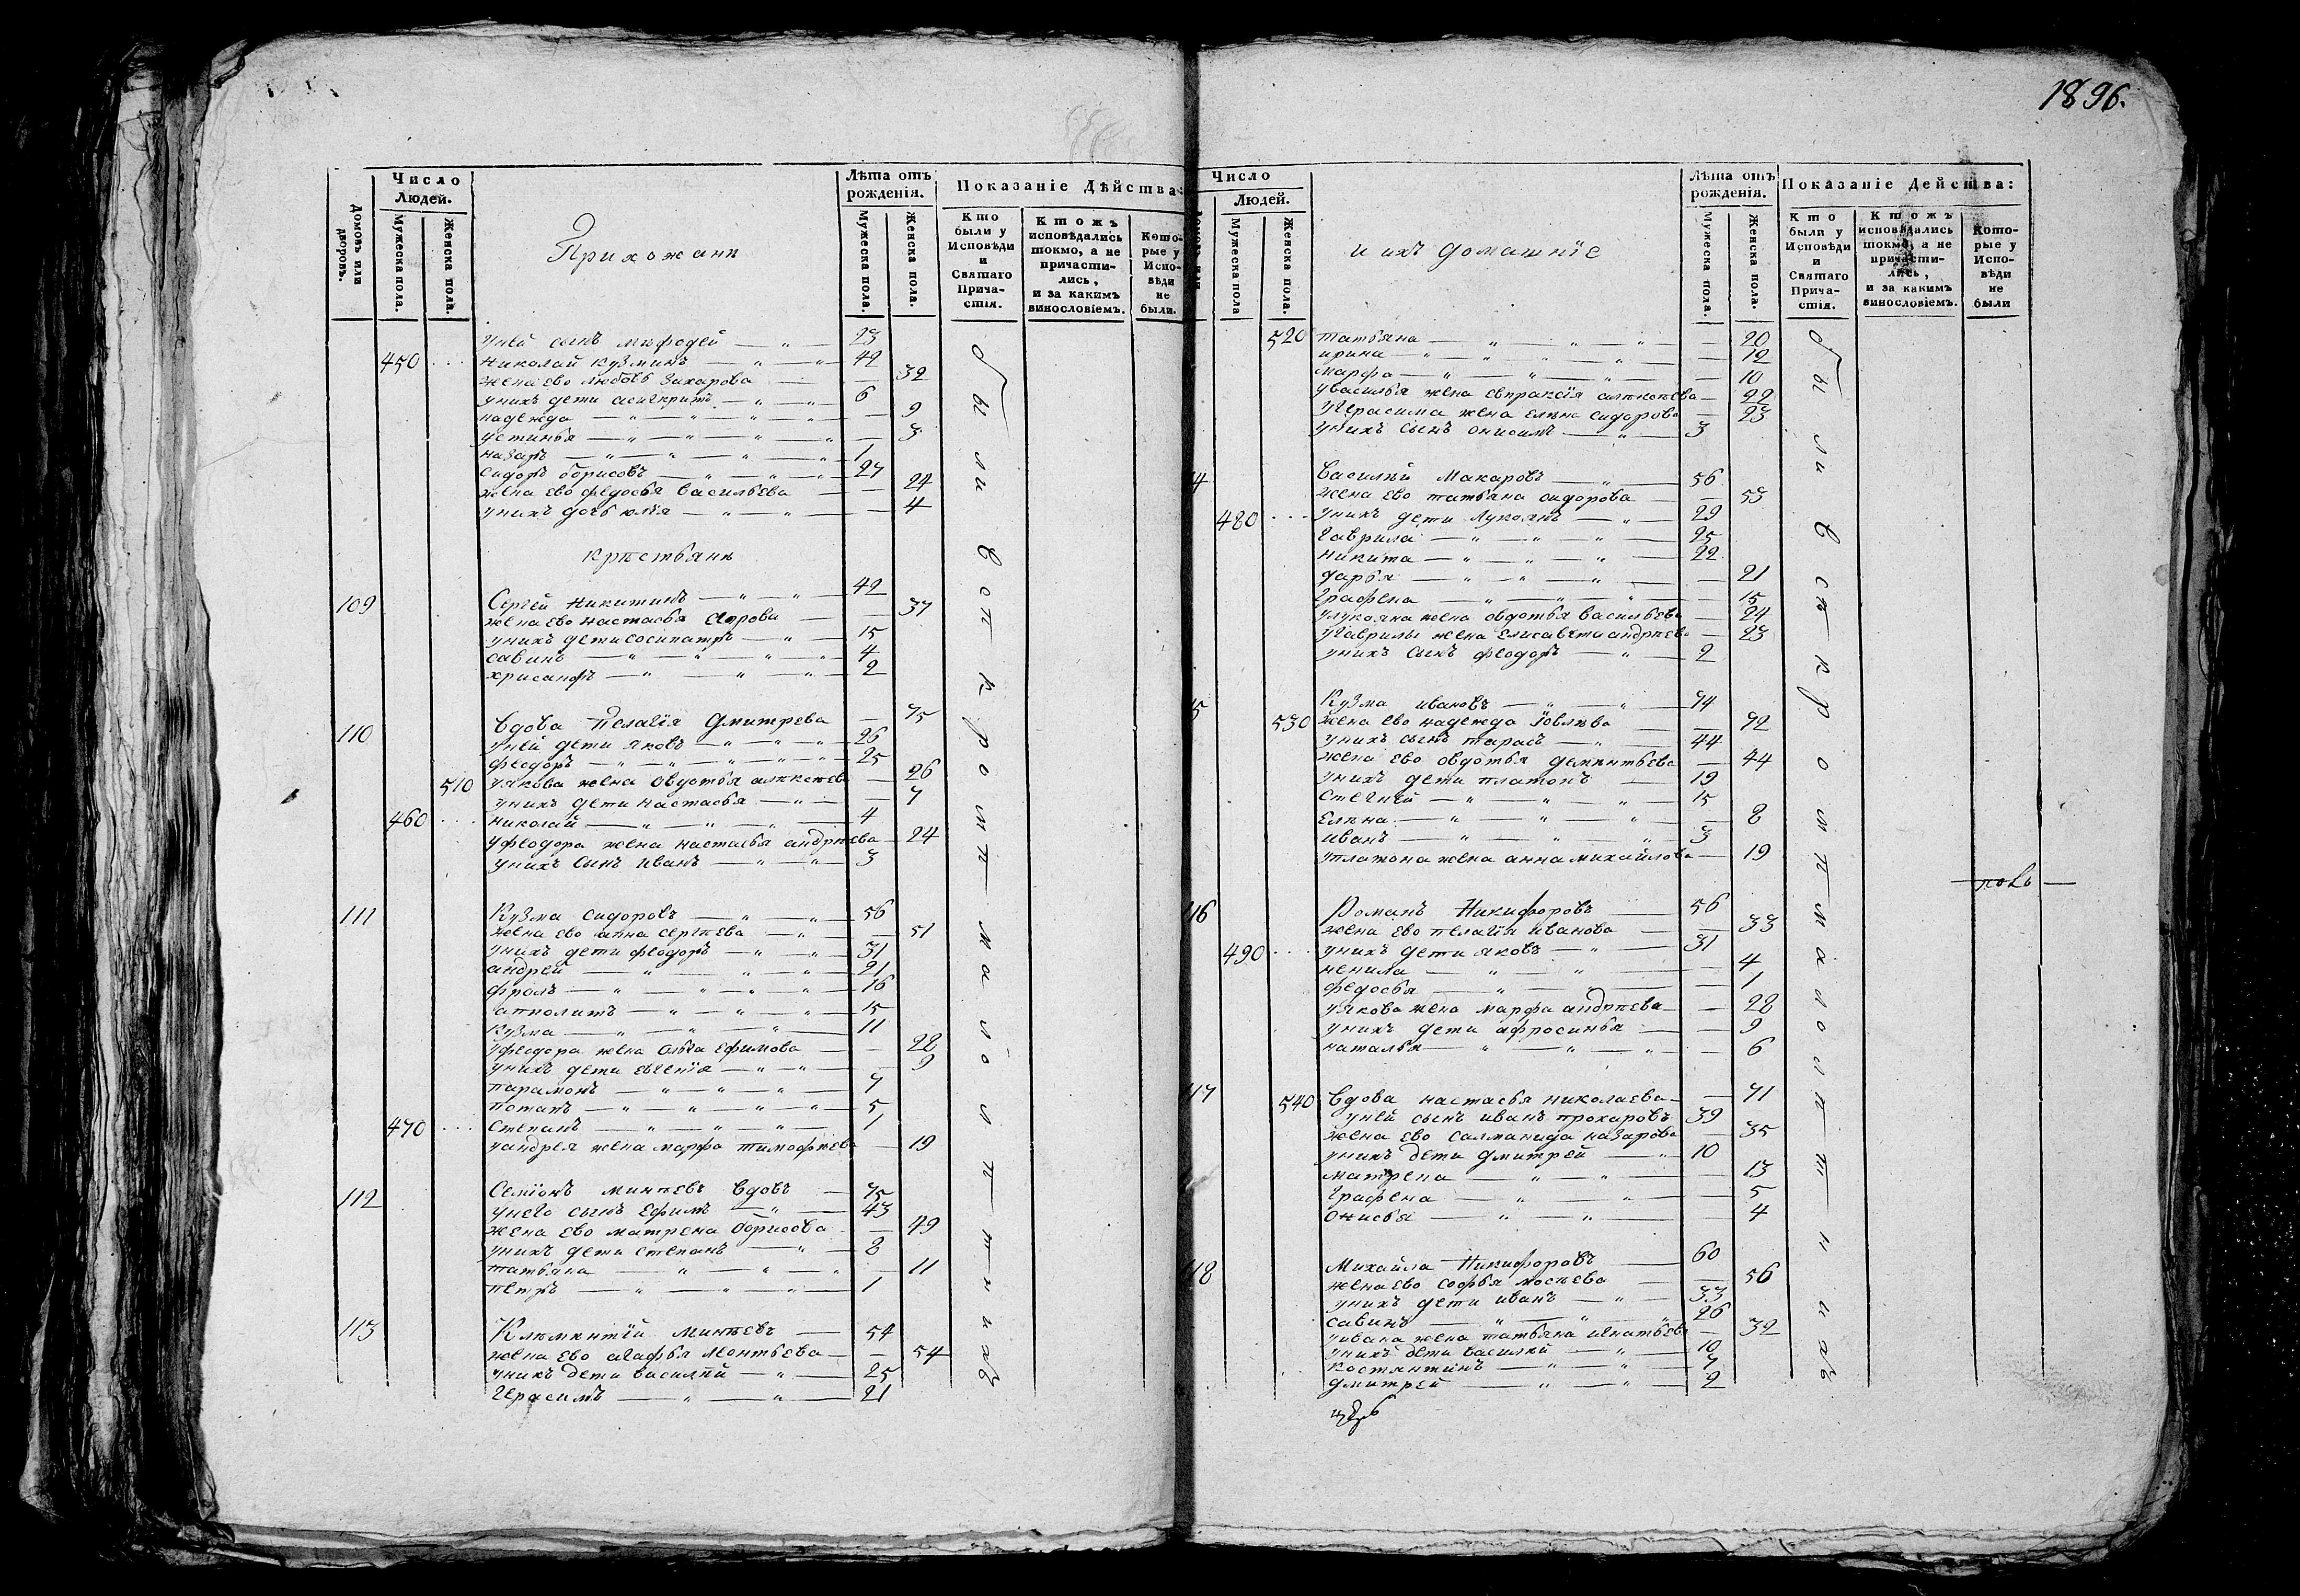 1896.
Число Людей.
Лѣта отъ рожденія.
Показаніе Дѣйства:
Домовъ или дворовъ.
Мужеска пола.
Женска пола.
Прихожанѣ
Мужеска пола.
Женска пола.
Кто были у Исповѣди и Святаго Прича-стія.
Ктожъ исповѣдались токмо, а не причасти-лись, и за какимъ винословіемъ.
Кото-рые у Испо-вѣди не были.
уней сынъ мефодей 23
450 Николай Кузминъ 42
жена ево любовь Захарова 32
унихъ дети асигкритъ 6
надежда 9
устинья 3
назаръ 1
Сидоръ борисовъ 27
жена ево федосья васильева 24
унихъ дочь юлія 4
крѣстьянѣ
109 Сергей Никитинъ 42
жена ево настасья 37
унихъ дети сосипатръ 15
савинъ 4
хрисанфъ 2
110 Вдова Пелагія Дмитрева 75
уней дети яковъ 26
феодоръ 25
510 уякова жена овдотья алѣксѣева 26
унихъ дети настасья 7
460 николай 4
уфеодора жена настасья андрѣева 24
унихъ сынъ иванъ 3
111 Кузма сидоровъ 56
жена ево анна сергѣева 51
унихъ дети феодоръ 31
андрей 21
фролъ 16
апполитъ 15
кузма 11
уфеодора жена ольга ефимова 28
унихъ дети евгенія 9
парамонъ 7
потапъ 5
470 степанъ 1
уандрея жена марфа тимофѣева 19
112 Семіонъ минѣевъ вдовъ 75
унего сынъ ефимъ 43
жена ево матрена борисова 49
унихъ дети степанъ 8
татьяна 11
петръ 1
113 Климентій минѣевъ 54
жена ево агафья леонтьева 54
унихъ дети василѣй 25
герасимъ 21
были вси кромѣ малолѣтнихъ
Число Людей.
Лѣта отъ рожденія.
Показаніе Дейсшва:
Мужеска пола
Женска пола.
и ихъ домашніе
Мужеска пола.
Женска пола.
Кто были у Исповѣди и Святаго Прича-стія.
Ктожъ исповѣдались токмо, а не причасти-лись, и за какимъ винословіемъ.
Кото-рые у Испо-вѣди не были
520 татьяна 20
ирина 12
марфа 10
увасилья жена евпраксія 22
угерасима жена елѣна сидорова 23
унихъ сынъ онисимъ 3
4 Василѣй Макаровъ 56
жена ево татьяна сидорова 55
480 унихъ дети Лукоянъ 29
гаврила 25
никита 22
дарья 21
графена 15
улукояна жена овдотья васильева 24
угаврилы жена елисавета андрѣева 23
унихъ сынъ феодоръ 2
5 Кузма ивановъ 74
530 жена ево надежда іовлѣва 72
унихъ сынъ тарасъ 44
жена ево овдотья деметьева 44
унихъ дети платонъ 19
стегней 15
елѣна 8
иванъ 3
уплатона жена анна михайлова 19
16 Романъ Никифоровъ 56
жена ево пелагія иванова 33
490 унихъ дети яковъ 31
ненила 4
федосья 1
уякова жена марфа андрѣева 28
унихъ дети афросинья 9
наталья 6
17 540 Вдова настасья николаева 71
уней сынъ иванъ прохаровъ 39
жена ево салманида назарова 35
унихъ дети дмитрей 10
матрена 13
графена 5
онисья 4
18 Михайла Никифоровъ 60
жена ево софья мосѣева 56
унихъ дети иванъ 33
савинъ 26
уивана жена татьяна игнатьева 32
унихъ дети василѣй 10
костянтинъ 7
дмитрей 2
были вси кромѣ малолѣтнихъ